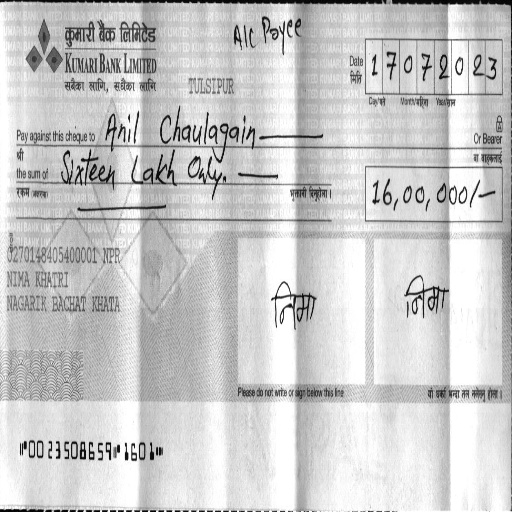 कुमारी बैंक लिमिटेड
A/C Payee
KUMARI BANK LIMITED
सबैका लागि, सधैंका लागि
TULSIPUR
Date
मिति
17072023
Day/गते Month/महिना Year/साल
Pay against this cheque to Anil Chaulagain
Or Bearer
श्री
वा वाहकलाई
the sum of Sixteen Lakh Only.
रकम (अक्षरमा)
भुक्तानी दिनुहोला।
16,00,000/-
0270148405400001 NPR
NIMA KHATRI
NAGARIK BACHAT KHATA
निमा निमा
Please do not write or sign below this line
यो धर्का भन्दा तल नलेख्नु होला।
⑈0023508659⑈1601⑈